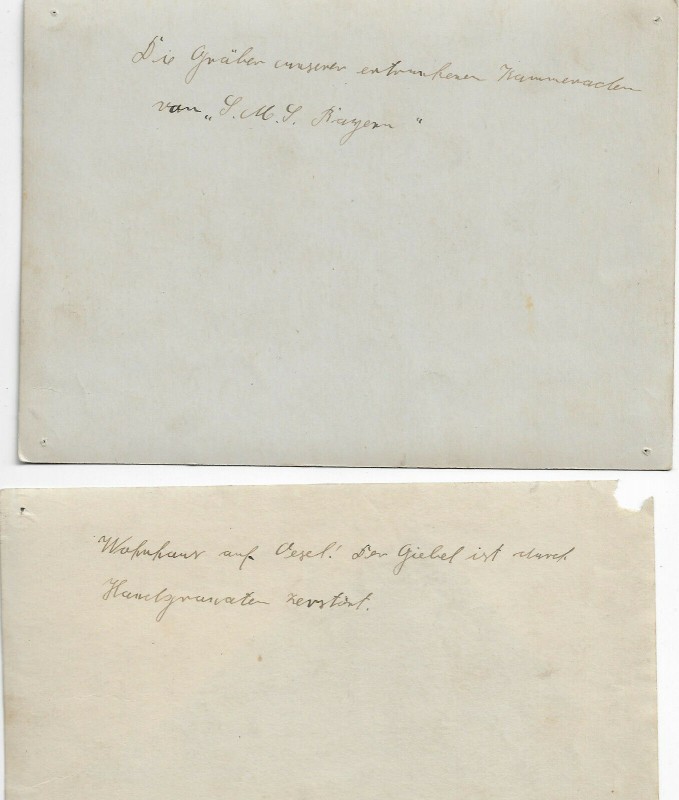 Die Gräber unserer ertrunkenen Kammeraden
von „S.M.S. Bayern“
Wohnhaus auf Oesel! Der Giebel ist durch
Handgranaten zerstört.